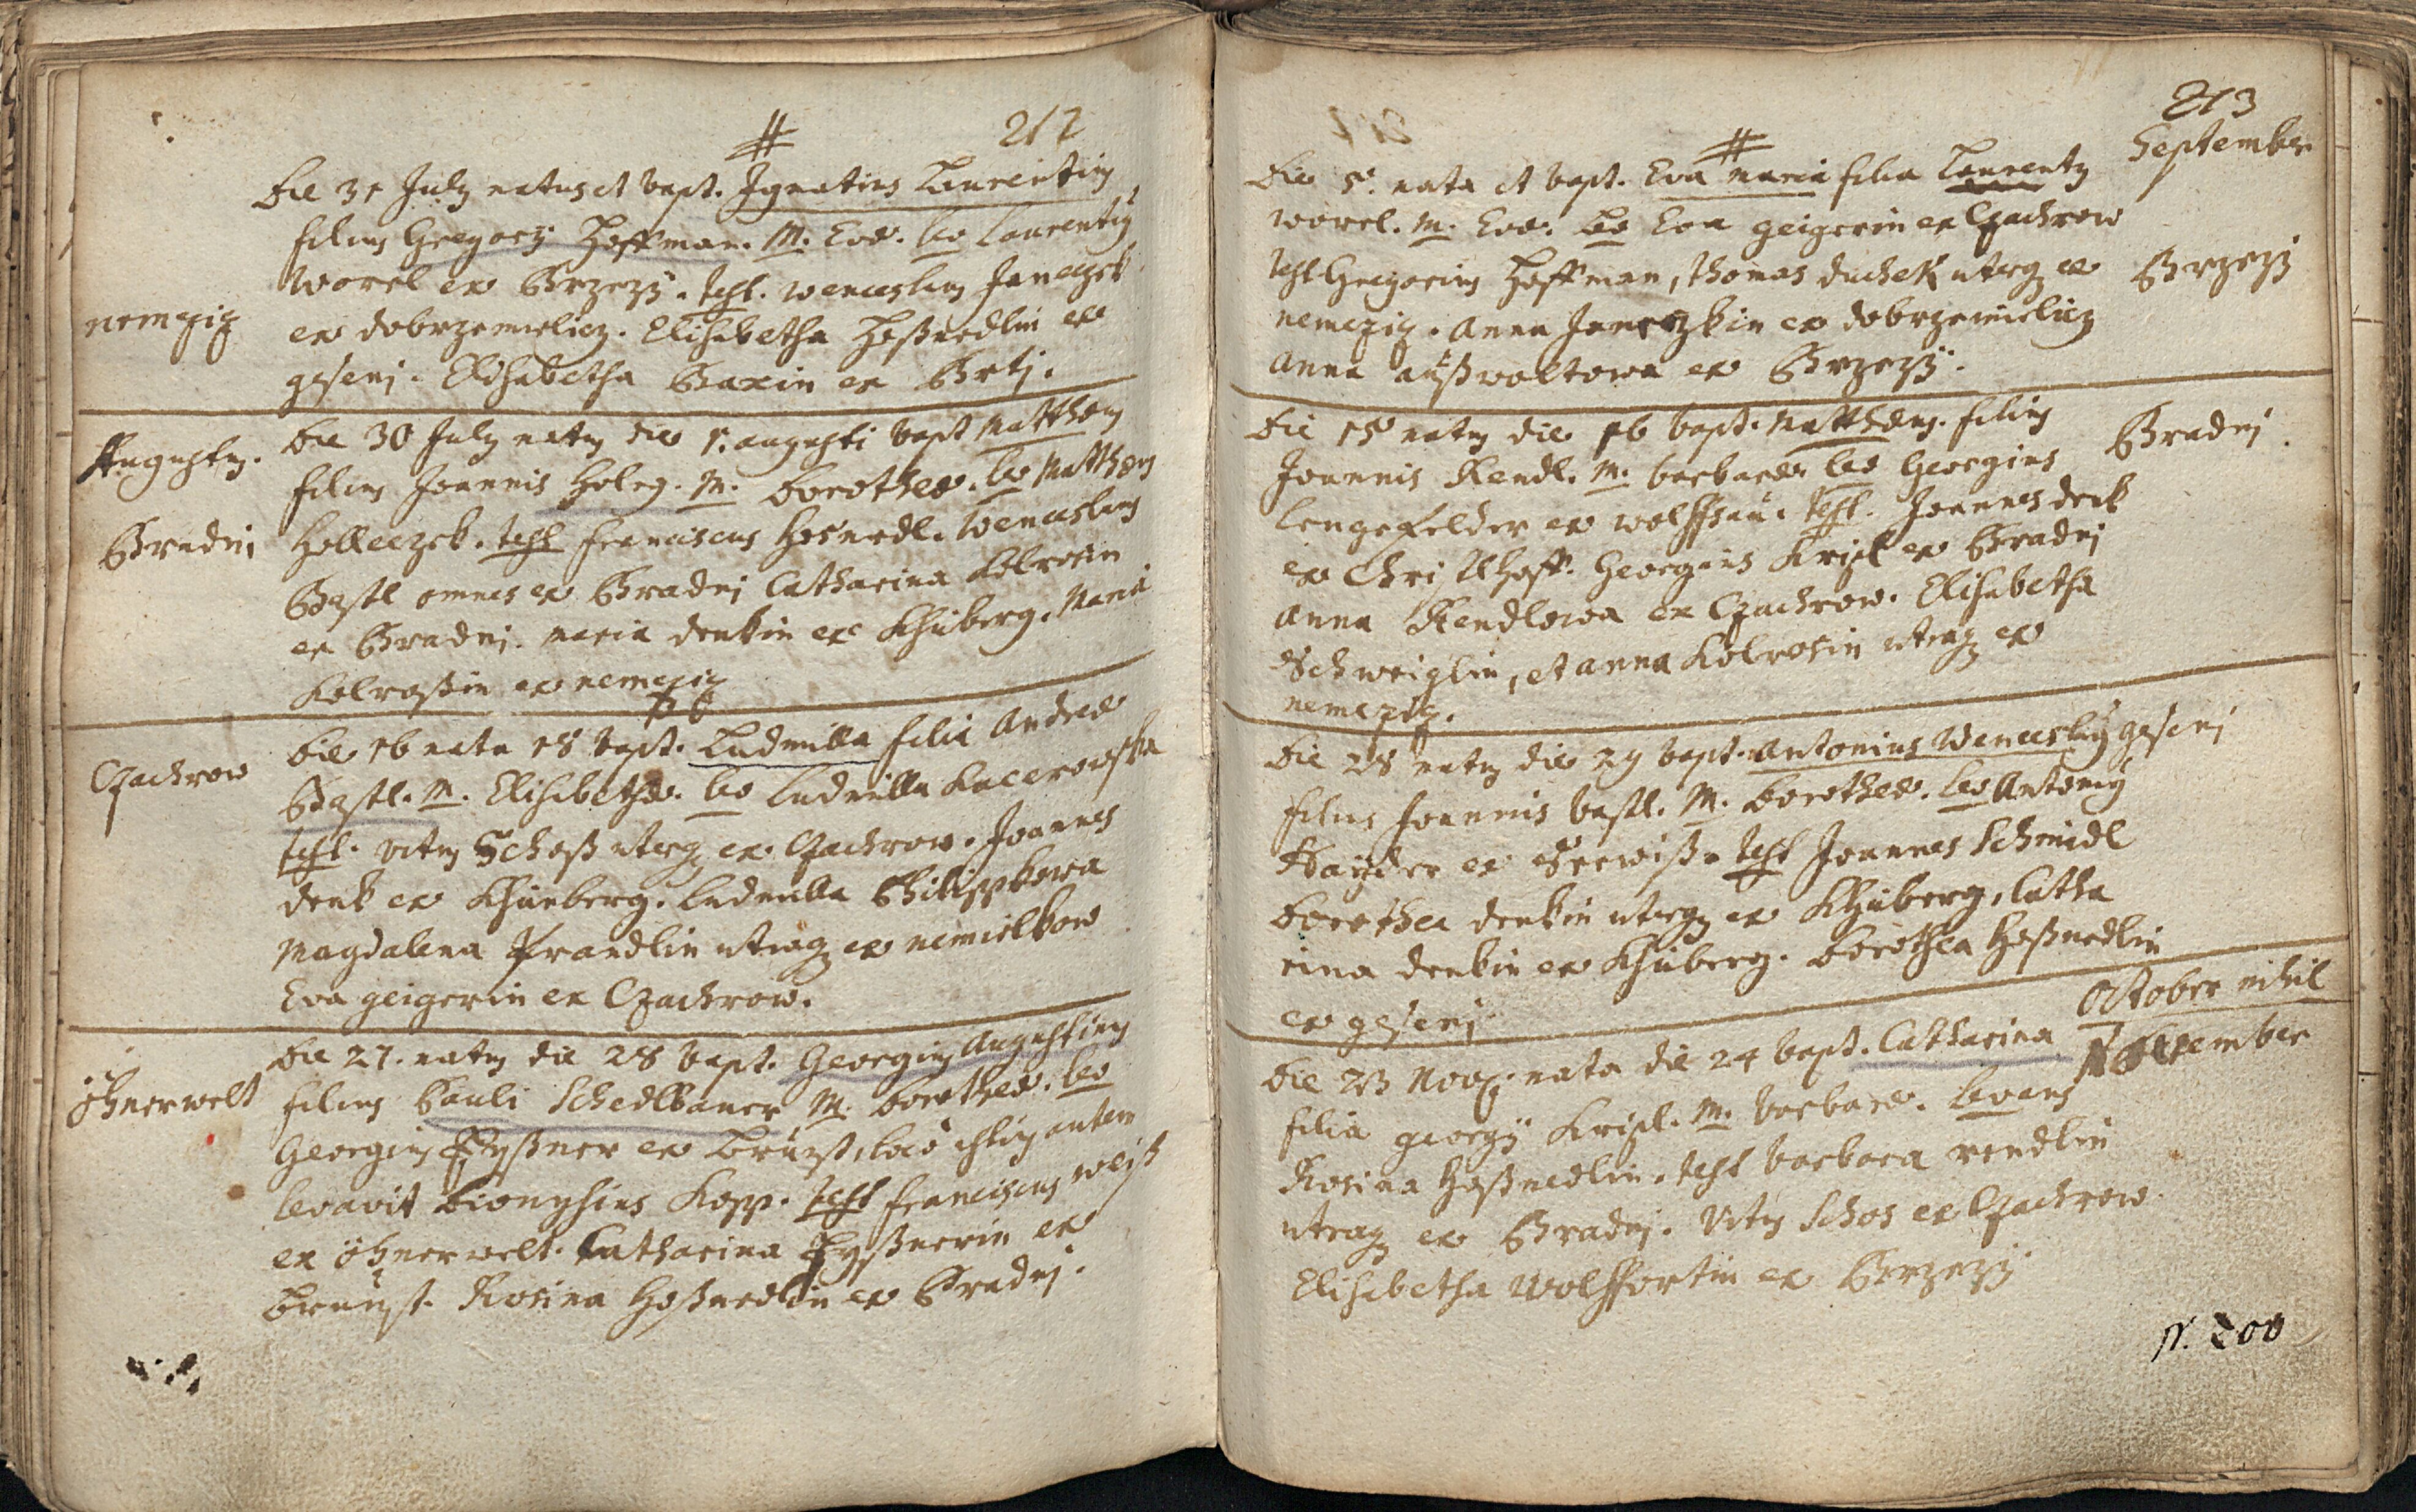 212
#
Die 31 July natus et bapt. Ignatius Laurentius
filius Gregorÿ Hoffman. M. Evæ. Le Laurentiÿ
Worel ex Brzezÿ. test. wenceslaus Janeczek
nemcziz
ex dobrzemielicz. Elisabetha Hoßnedlin ex
gesenj. Elisabetha Baxin ex Brtj.
Augustus.
Die 30 July natus die 1. augusti bapt Matthæus
filius Joannis Holeg. M. Dorotheæ. Le Matthæus
Bradnj
Holleczek. test franciscus Hosnedl. Wenceslaus
Bastl omnes ex Bradnj Catharina Kolrosin
ex Bradnj. maria denkin ex Khüberg. Maria
Kolroßin ex nemcziz
Czachrow
Die 16 nata 18 bapt. Ludmilla filia Andreæ
Bastl. M. Elisabethæ. Le Ludmilla Kacerowska
test. vitus Schoß uterq ex Czachrow. Joannes
denk ex Khünberg. Ludmilla Philippkowa
Magdalena Prandlin utraq ex nemielkow
Eva geigerin ex Czachrow.
öhnerwelt
Die 27. natus die 28 bapt. Georgius Augustinus
filius Pauli Schedlbauer M. Dorotheæ. Le
Georgius Eyßner ex Brunst, loco istius autem
levavit Dionysius Kopp. test franciscus weiß
ex öhnerwelt. Catharina Eyßnerin ex
Brunst. Rosina Hoßnedlin ex Bradnj.
213
#
September
Die 5. nata et bapt. Eva maria filia Laurentÿ
worel. M. Evæ. Le Eva geigerin ex Czachrow
Brzezÿ
test Gregorius Hoffman, thomas duchek uterq ex
nemcziz. Anna Janeczkin ex dobrzemielicz
Anna außwaltowa ex Brzezÿ.
Bradnj.
Die 15 natus die 16 bapt. Matthæus. filius
Joannis Rendl. M. barbaræ Le Georgius
Lengefelder ex wolffsau. test. Joannes denk
ex Chri Hhoff. Georgius Kripl ex Bradnj
Anna Rendlowa ex Czachrow. Elisabetha
Schweiglin, et anna Kolrosin utraq ex
nemcziz.
Die 28 natus die 29 bapt. Antonius Wenceslaÿ gesenj
filius Joannis bastl. M. Dorotheæ. Le Antoniÿ
Hayder ex Seewiß. test Joannes Schmidl
Dorothea denkin uterq ex Khüberg, Catha
rina denkin ex Khüberg. Dorothea Hoßnedlin
ex gesenj
October nihil
November
Die 23 Nov. nata die 24 bapt. Catharina
filia georgÿ Kripl. M. barbaræ. Levans
Rosina Hoßnedlin. test barbara rendlin
utraq ex Bradnj. Vitus Schos ex Czachrow.
Elisabetha Wolffortin ex Brzezÿ
N. 200